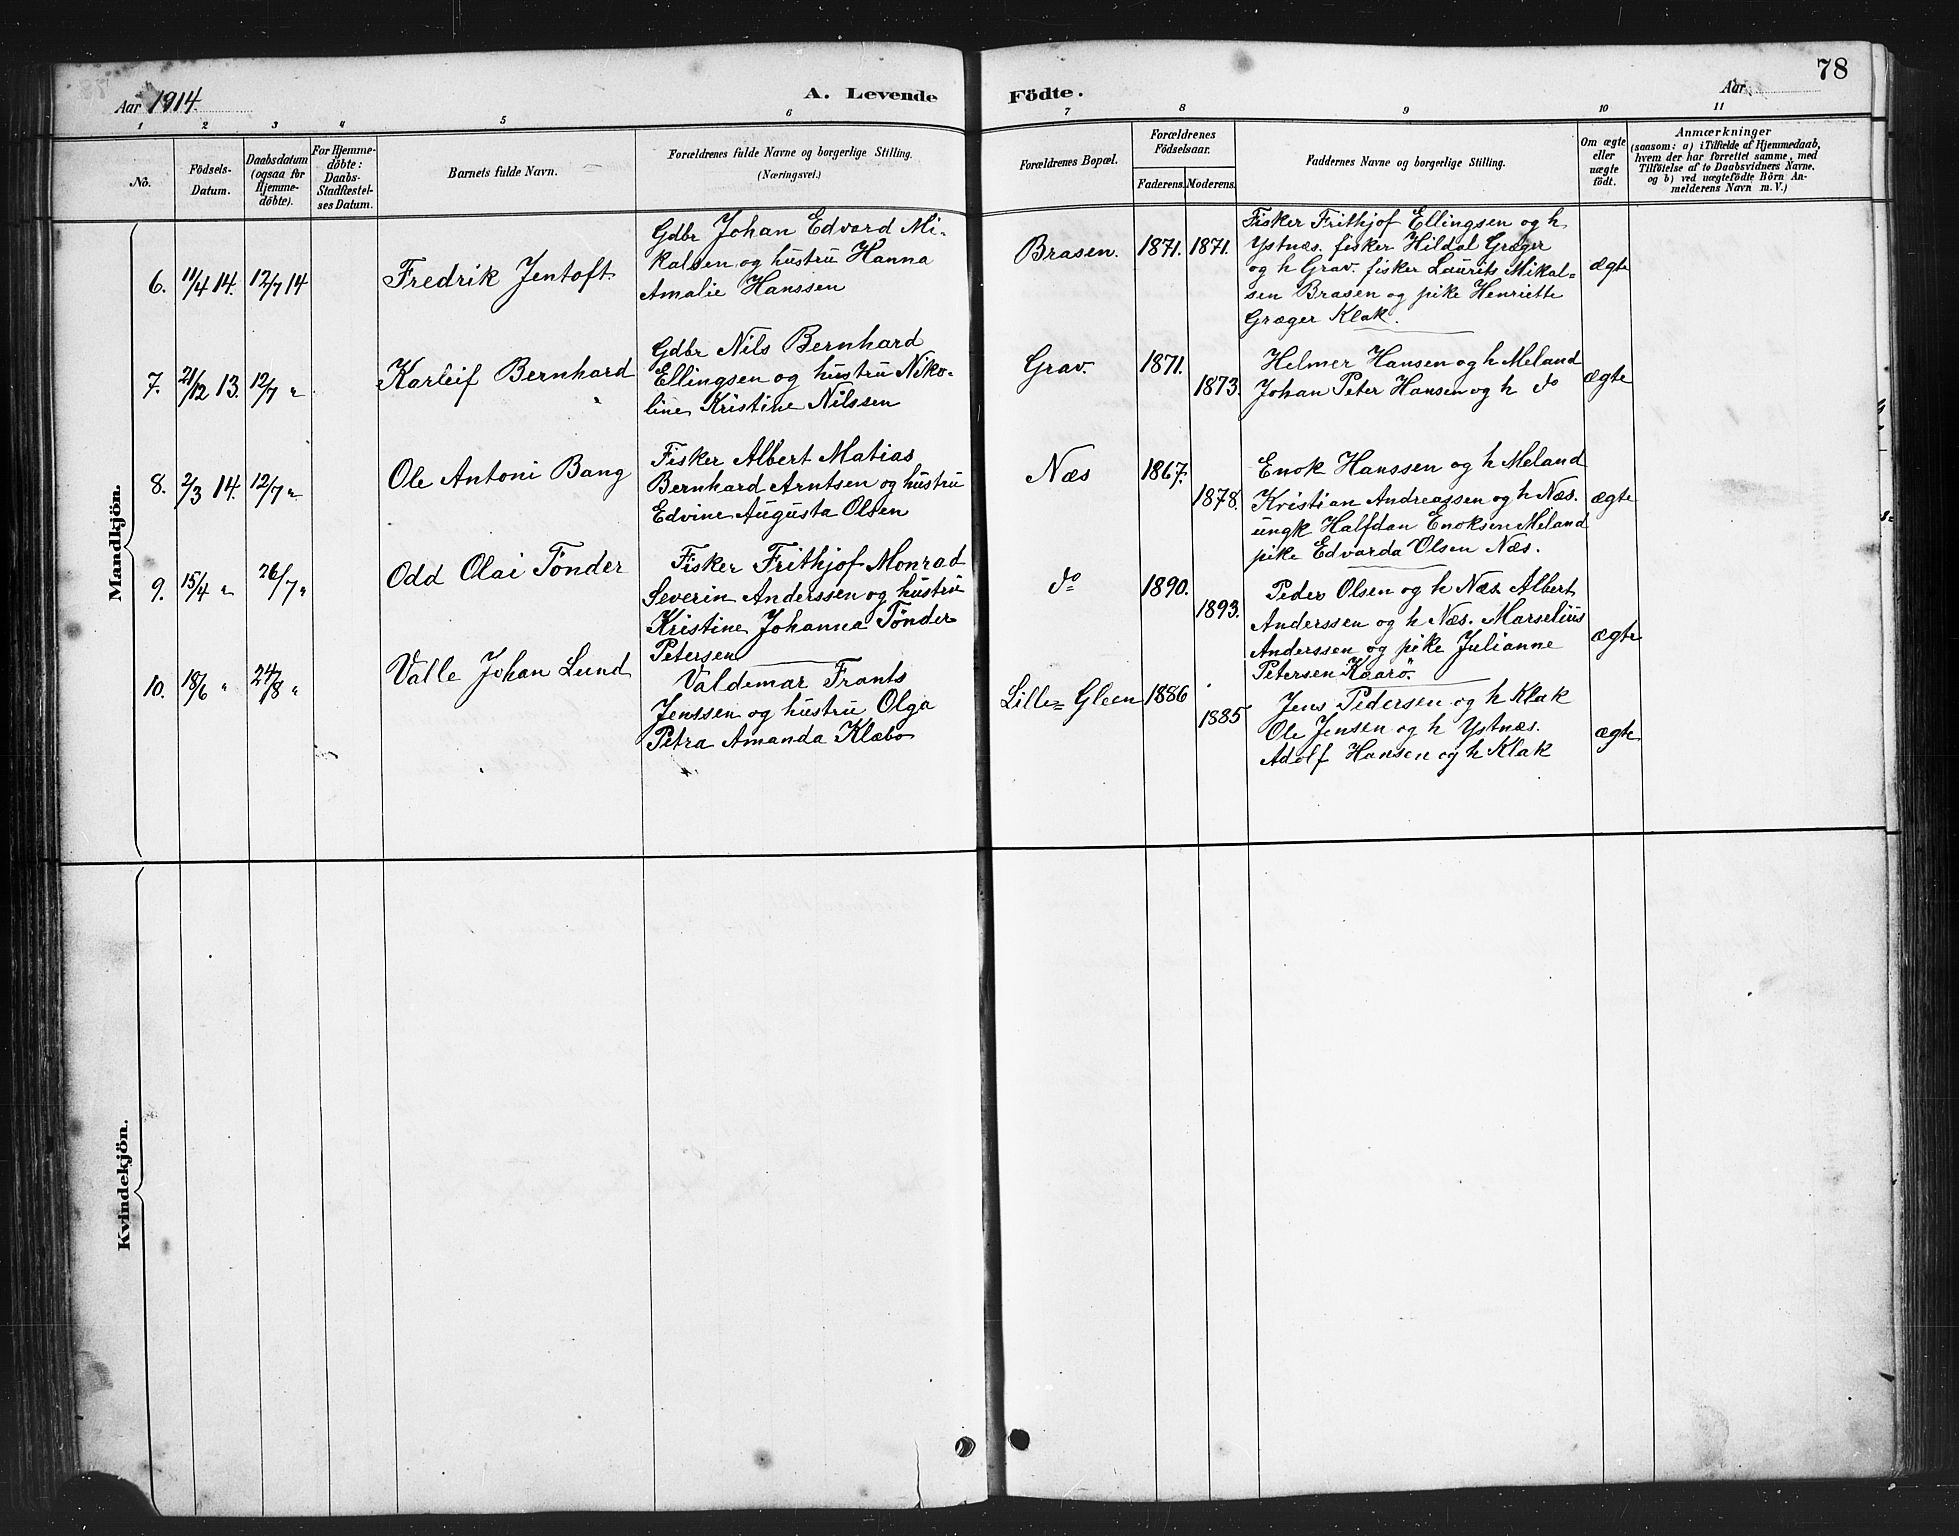 78
Aar 1914.
A. Levende Födte.
Aar
1 2 3 4 5 6 7 8 9 10 11
No.
Födsels-
Datum.
Daabsdatum
(ogsaa for
Hjemme-
döbte).
For Hjemme-
döbte:
Daabs-
Stadfæstel-
ses Datum.
Barnets fulde Navn.
Forældrenes fulde Navne og borgerlige Stilling.
(Næringsvei.)
Forældrenes Bopæl.
Forældrenes
Födselsaar.
Faderens. Moderens.
Faddernes Navne og borgerlige Stilling.
Om ægte
eller
uægte
født.
Anmærkninger
(saasom: a) i Tilfælde af Hjemmedaab,
hvem der har forrettet samme, med
Tilföielse af to Daabsvidners Navne.
og b) ved uægtefödte Börn An-
melderens Navn m. V.)
Mandkjön.
6. 11/4 14. 12/7 14
Fredrik Jentoft
Gdbr Johan Edvard Mi-
kalsen og hustru Hanna
Amalie Hanssen
Brasen. 1871. 1871.
Fisker Frithjof Ellingsen og h
Ystnæs. fisker Hildal Græger
og h Grav. fisker Laurits Mikal-
sen Brasen og pike Henriette
Græger Klak.
ægte
7. 21/12 13. 12/7 "
Karleif Bernhard
Gdbr Nils Bernhard
Ellingsen og hustru Niko-
line Kristine Nilssen
Grav. 1871. 1873.
Helmer Hansen og h Meland
Johan Peter Hansen og h do
ægte
8. 2/3 14. 12/7 "
Ole Antoni Bang
Fisker Albert Matias
Bernhard Arntsen og hustru
Edvine Augusta Olsen
Næs 1867. 1878.
Enok Hanssen og h Meland
Kristian Andreassen og h Næs.
ungk Halfdan Enoksen Meland
pike Edvarda Olsen Næs.
ægte
9. 15/4 " 26/7 "
Odd Olai Tönder
Fisker Frithjof Monrad
Severin Anderssen og hustru
Kristine Johanna Tönder
Petersen
do 1890. 1893.
Peder Olsen og h Næs Albert
Anderssen og h Næs. Marselius
Anderssen og pike Julianne
Petersen Kaarö.
ægte
10. 18/6 " 24/8 "
Valle Johan Lund
Valdemar Frants
Jenssen og hustru Olga
Petra Amanda Klæbo
Lille- Gleen 1886 1885
Jens Pedersen og h Klak
Ole Jensen og h Ystnæs.
Adolf Hansen og h Klak
ægte
Kvindekjön.